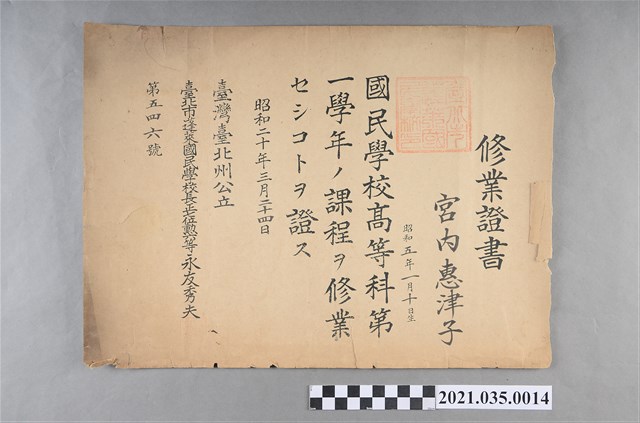 修業證書
宮内惠津子
昭和五年一月十日生
國民學校高等科第
一學年ノ課程ヲ修業
セシコトヲ證ス
昭和二十年三月二十四日
臺灣臺北州公立
臺北市蓬萊國民學校長正七位勲八等永友秀夫
第五四六號
2021.035.0014